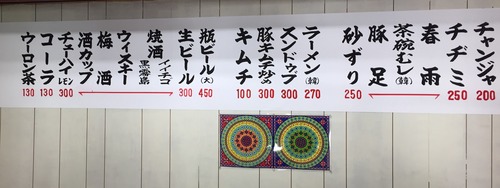 チャンジャ 200
チヂミ 250
春雨
茶碗むし(韓)
豚足
砂ずり 250
ラーメン(韓) 270
スンドゥブ 300
豚キムチ炒め 300
キムチ 100
瓶ビール(大) 450
生ビール 300
焼酒 イイチコ 黒霧島
ウィスキー
梅酒
酒カップ
チューハイ 300
コーラ 130
ウーロン茶 130